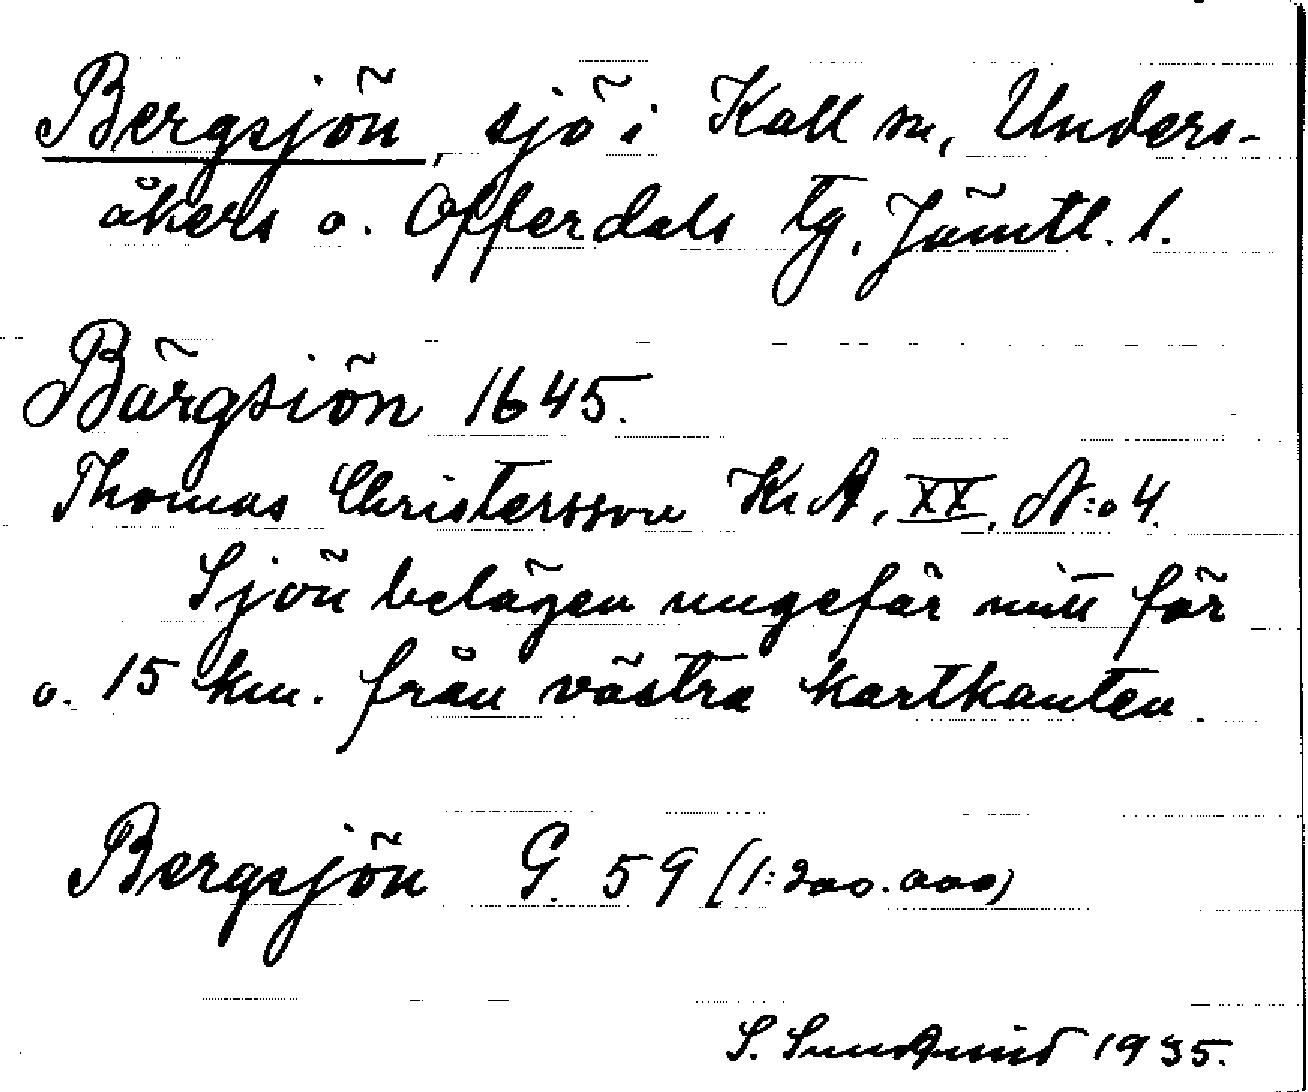 Bergsjön, sjö i Kall sn, Unders-
åkers o. Offerdals tg. Jämtl. l.
Bärgsiön 1645.
Thomas Christersson K.A, XX, N:o 4.
Sjön belägen ungefär mitt för
o. 15 km. från västra kartkanten.
Bergsjön G. 59 (1:200.000)
S. Sundqvist 1935.